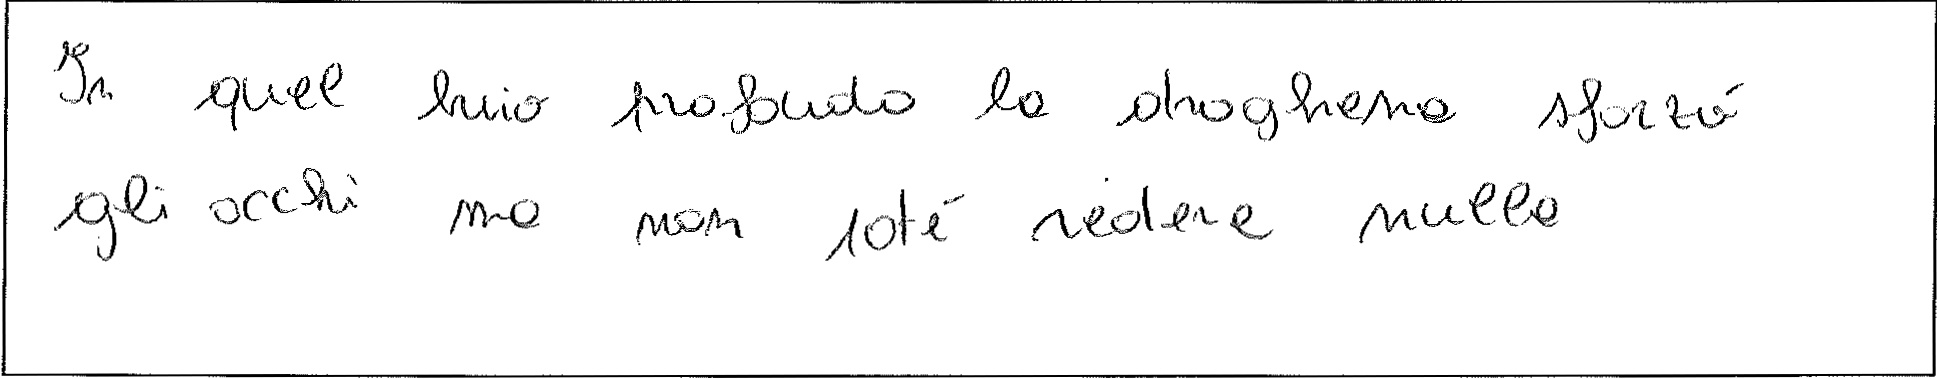 In quel buio profondo la droghena sforzó
gli occhi ma non poté vedere nulla